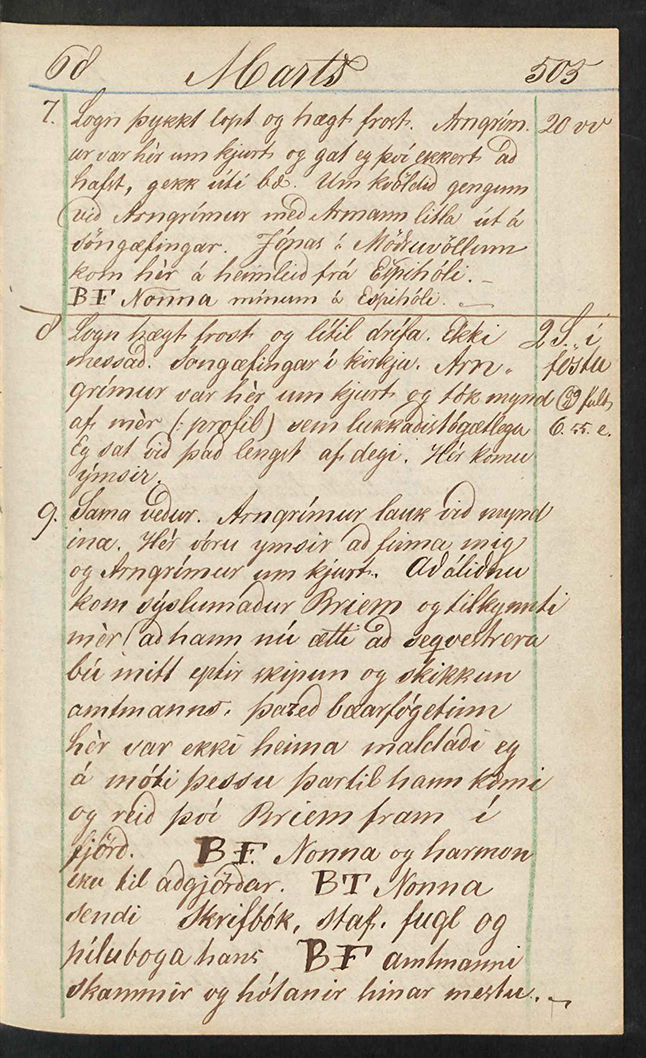 68 Marts 505
7. Logn þykkt lopt og hægt frost. Arngrím- 20 vv
ur var hèr um kjurt og gat eg því ekkert að
hafst, gekk úti bæ. Um kvöldið gengum
við Arngrímur með Armann litla út á
söngæfingar. Jónas á Möðruvöllum
kom hèr á heimleið frá Espihóli. -
BF Nonna mínum á Espihóli.
8 Logn hægt frost og lítil drífa. Ekki 2 S. í
messað. Songæfingar í kirkju. Arn- föstu
grímur var hèr um kjurt og tók mynd
af mèr (: profil) sem lukkaðist ágætlega 6. 55 e.
Eg sat við það lengst af degi. Hér komu
ýmsir.
9. Sama veður. Arngrímur lauk við mynd
ina. Hér vóru ymsir að finna mig
og Arngrímur um kjurt. Að áliðnu
kom sýslumaður Briem og tilkynnti
mèr að hann nú ætti að seqvestrera
bú mitt eptir skipun og skikkun
amtmanns, þareð bæarfógetinn
hèr var ekki heima maldaði eg
á móti þessu þar til hann kómi
og reið því Briem fram í
fjörð. BF. Nonna og harmon
iku til aðgjörðar. BT Nonna
sendi Skrifbók, staf, fugl og
píluboga hans BF amtmanni
skammir og hótanir hinar mestu.